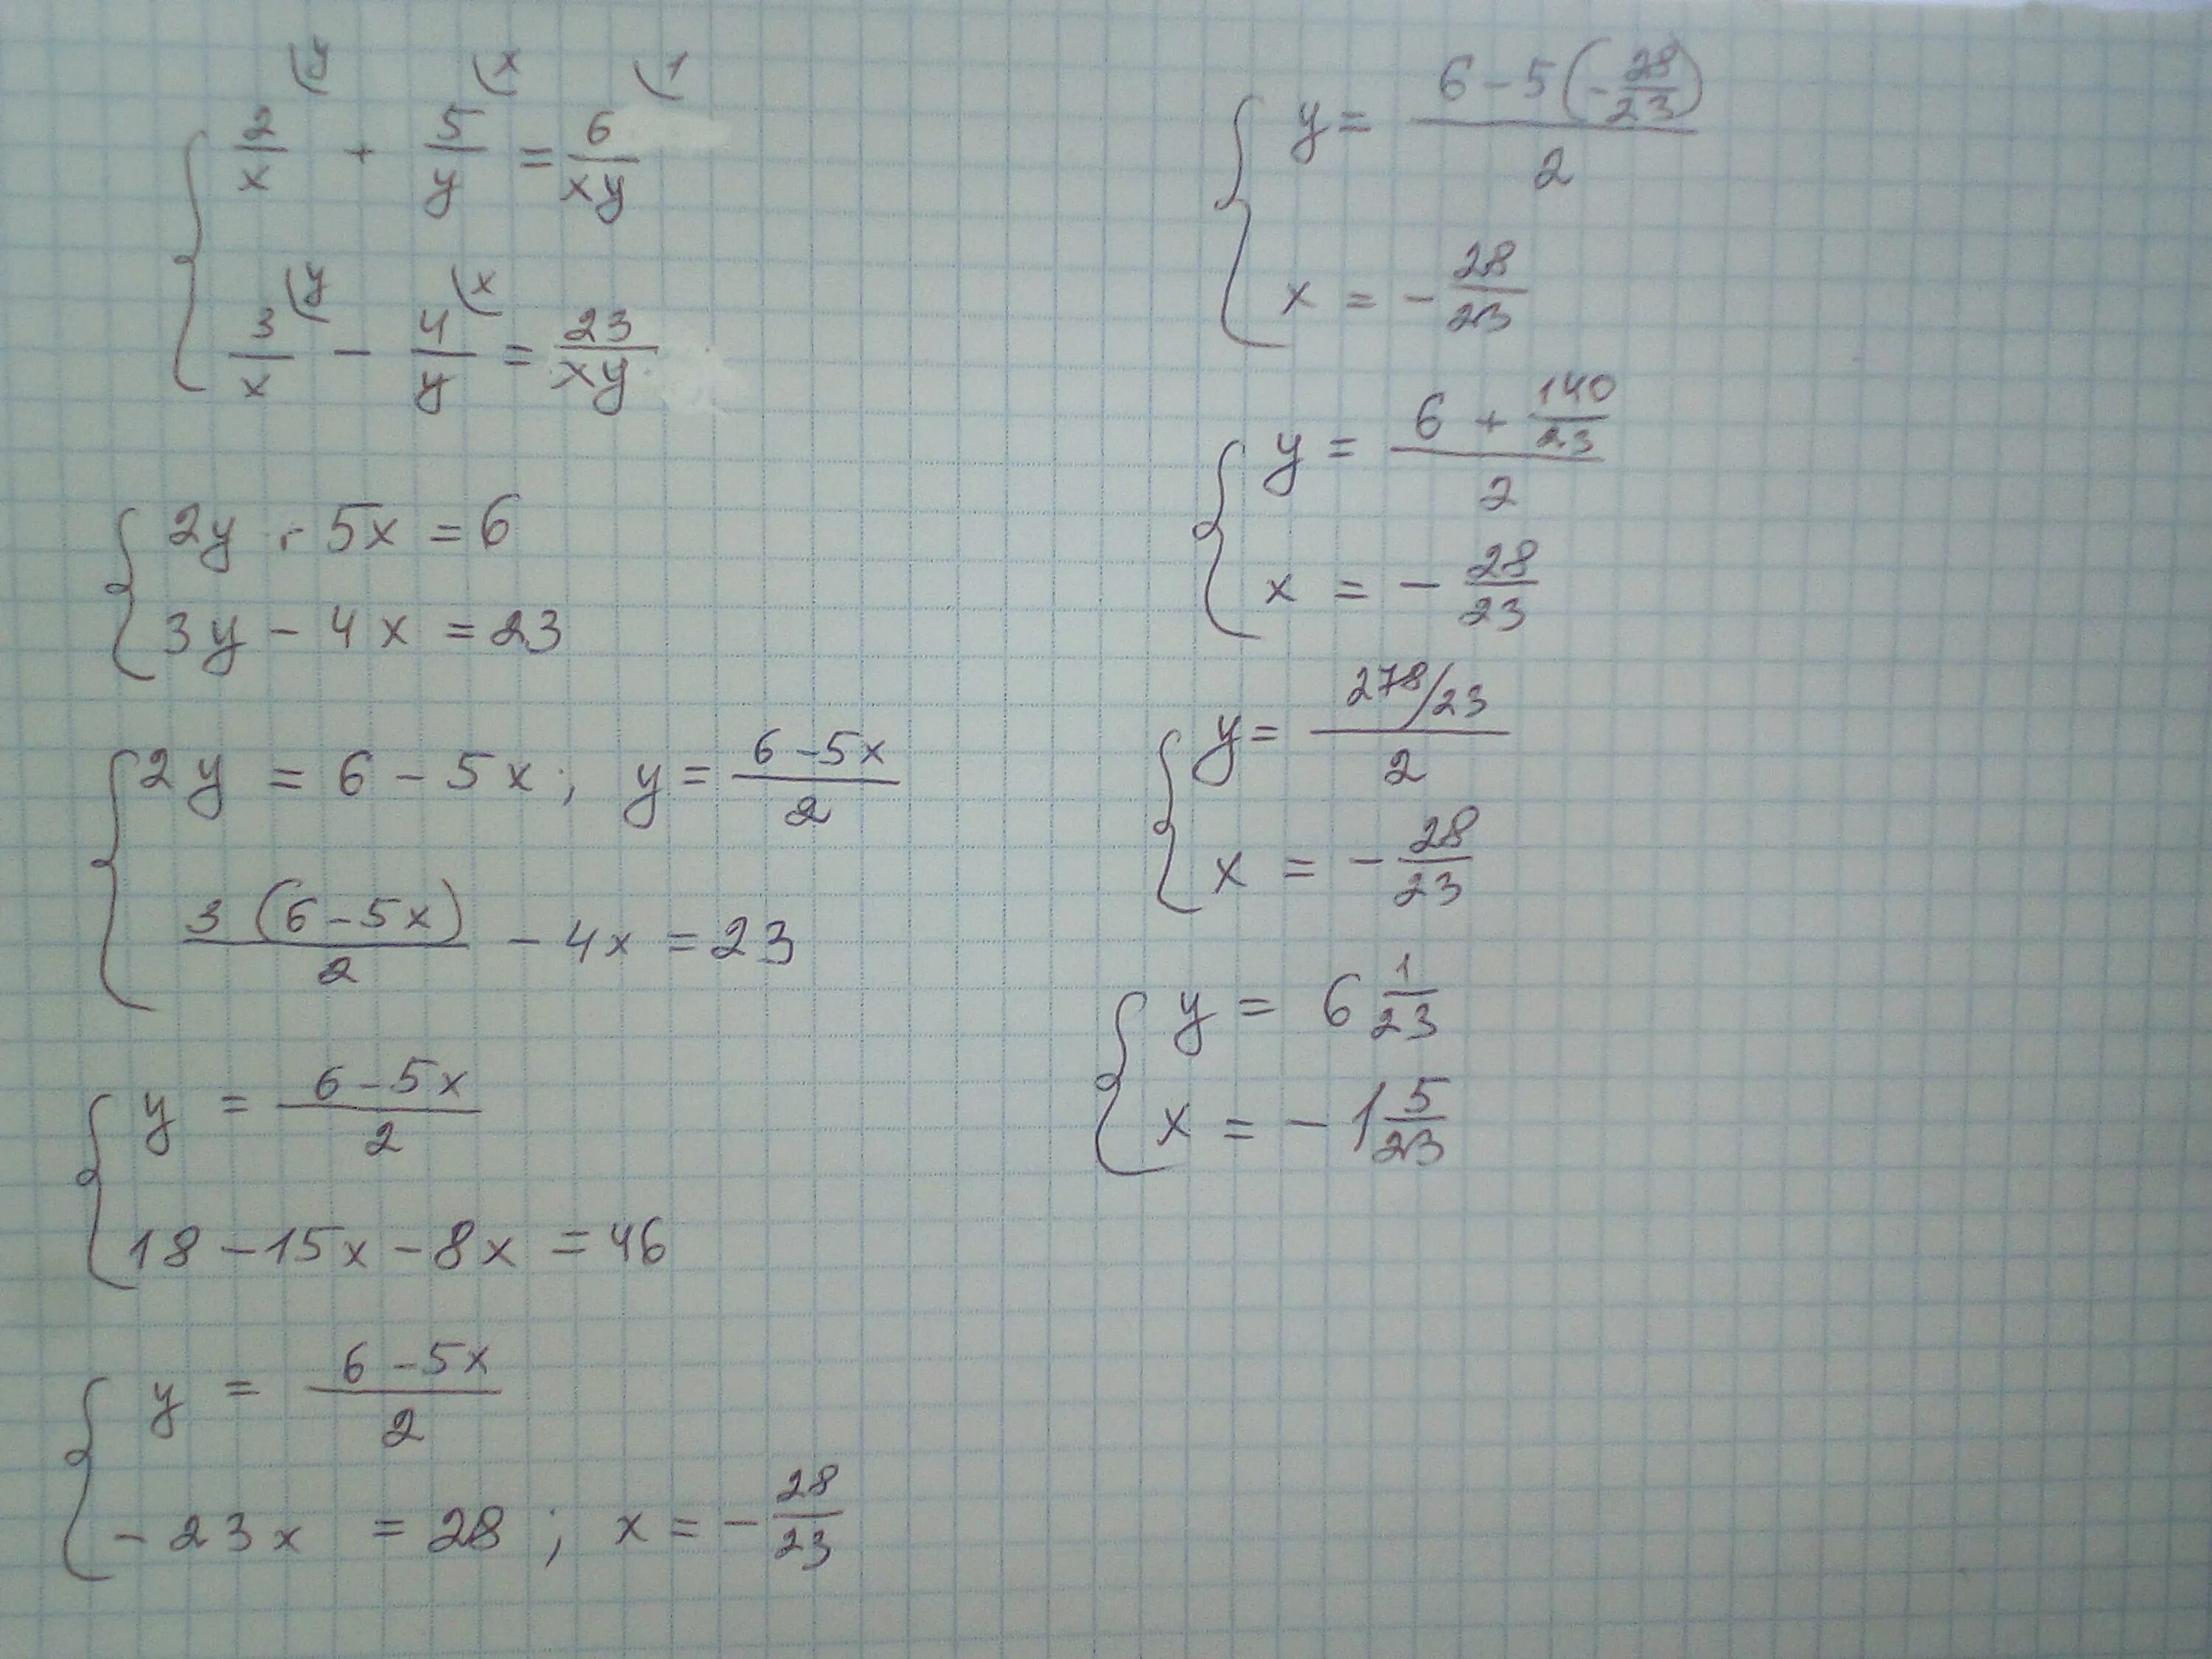 2/x (y + 5/y (x = 6/xy (1
3/x (y − 4/y (x = 23/xy
2y + 5x = 6
3y − 4x = 23
2y = 6 − 5x; y = (6 − 5x)/2
3(6 − 5x)/2 − 4x = 23
y = (6 − 5x)/2
18 − 15x − 8x = 46
y = (6 − 5x)/2
−23x = 28; x = −28/23
y = (6 − 5(−28/23))/2
x = −28/23
y = (6 + 140/23)/2
x = −28/23
y = (278/23)/2
x = −28/23
y = 6 1/23
x = −1 5/23